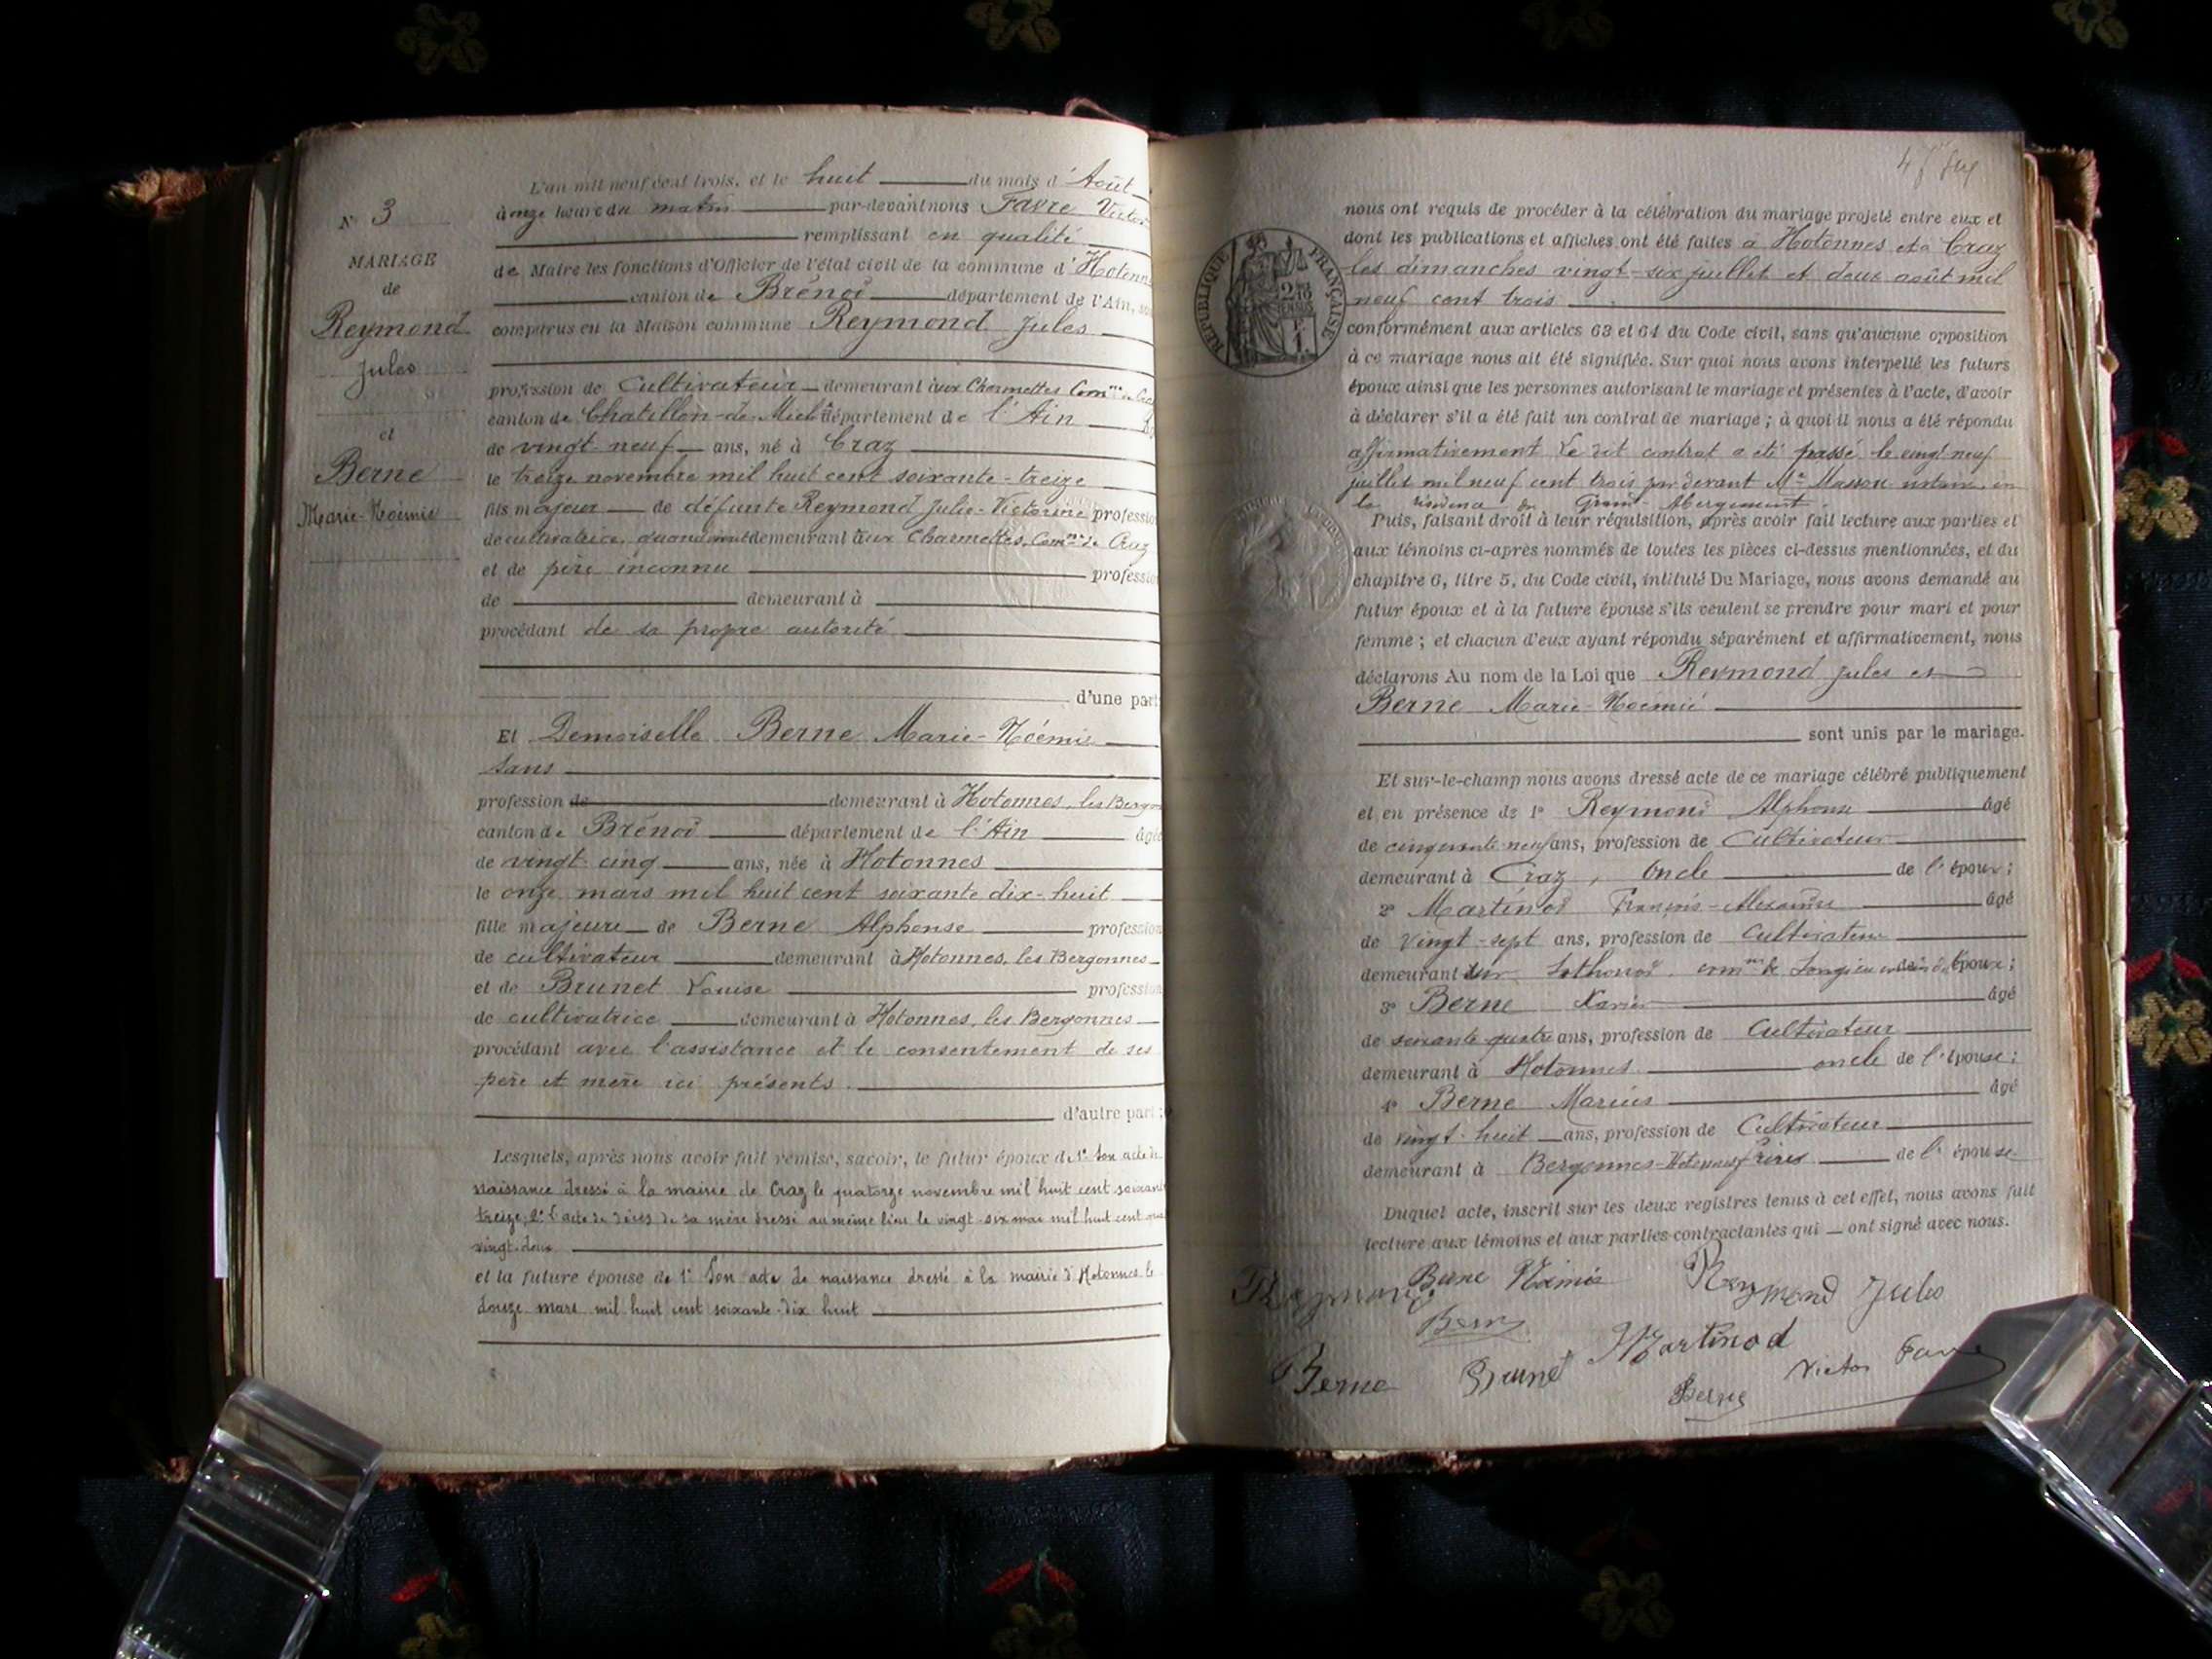 N° 3
MARIAGE
de
Reymond
Jules
et
Berne
Marie-Noémie
L'an mil neuf cent trois, et le huit du mois d'Août
à onze heures du matin par-devant nous Favre Victor
remplissant en qualité
de Maire les fonctions d'Officier de l'état civil de la commune d'Hotonnes
canton de Brénod département de l'Ain,
comparus en la Maison commune Reymond Jules
profession de Cultivateur demeurant aux Charmettes Comne de Craz
canton de Chatillon-de-Michle département de l'Ain
de vingt-neuf ans, né à Craz
le treize novembre mil huit cent soixante-treize
fils majeur de défunte Reymond Julie-Victorine profession
de cultivatrice, quand vivait demeurant aux Charmettes, Comne de Craz
et de père inconnu profession
de demeurant à
procédant de sa propre autorité
d'une part
Et Demoiselle Berne Marie-Noémie
sans
profession de demeurant à Hotonnes, les Bergon
canton de Brénod département de l'Ain âgée
de vingt-cinq ans, née à Hotonnes
le onze mars mil huit cent soixante dix-huit
fille majeure de Berne Alphonse profession
de cultivateur demeurant à Hotonnes, les Bergonnes
et de Brunet Louise profession
de cultivatrice demeurant à Hotonnes, les Bergonnes
procédant avec l'assistance et le consentement de ses
père et mère ici présents
d'autre part;
Lesquels, après nous avoir fait remise, savoir, le futur époux de 1° Son acte de
naissance dressé à la mairie de Craz le quatorze novembre mil huit cent soixante
treize; 2° l'acte de décès de sa mère dressé au même lieu le vingt-six mai mil huit cent
vingt-deux
et la future épouse de 1° Son acte de naissance dressé à la mairie d'Hotonnes le
douze mars mil huit cent soixante-dix huit
RÉPUBLIQUE FRANÇAISE
nous ont requis de procéder à la célébration du mariage projeté entre eux et
dont les publications et affiches ont été faites à Hotonnes et à Craz
les dimanches vingt-six juillet et deux août mil
neuf cent trois
conformément aux articles 63 et 64 du Code civil, sans qu'aucune opposition
à ce mariage nous ait été signifiée. Sur quoi nous avons interpellé les futurs
époux ainsi que les personnes autorisant le mariage et présentes à l'acte, d'avoir
à déclarer s'il a été fait un contrat de mariage; à quoi il nous a été répondu
affirmativement Le dit contrat a été passé le vingt neuf
juillet mil neuf cent trois par devant Me Masson notaire en
la résidence du Grand-Abergement.
Puis, faisant droit à leur réquisition, après avoir fait lecture aux parties et
aux témoins ci-après nommés de toutes les pièces ci-dessus mentionnées, et du
chapitre 6, titre 5, du Code civil, intitulé Du Mariage, nous avons demandé au
futur époux et à la future épouse s'ils veulent se prendre pour mari et pour
femme; et chacun d'eux ayant répondu séparément et affirmativement, nous
déclarons Au nom de la Loi que Reymond Jules et
Berne Marie-Noémie
sont unis par le mariage.
Et sur-le-champ nous avons dressé acte de ce mariage célébré publiquement
et en présence de 1° Reymond Alphonse âgé
de cinquante-neuf ans, profession de Cultivateur
demeurant à Craz, Oncle de l'époux;
2° Martinod François-Alexandre âgé
de vingt-sept ans, profession de Cultivateur
demeurant sur Lothonod, comne de Songieu époux;
3° Berne Xavier âgé
de soixante quatre ans, profession de Cultivateur
demeurant à Hotonnes oncle de l'épouse;
4° Berne Marius âgé
de vingt-huit ans, profession de Cultivateur
demeurant à Bergonnes-Hotonnes frère de l'épouse
Duquel acte, inscrit sur les deux registres tenus à cet effet, nous avons fait
lecture aux témoins et aux parties contractantes qui ont signé avec nous.
Reymond Berne Noémie Reymond Jules
Berne
Martinod
Berne Brunet Victor Favre
Berne